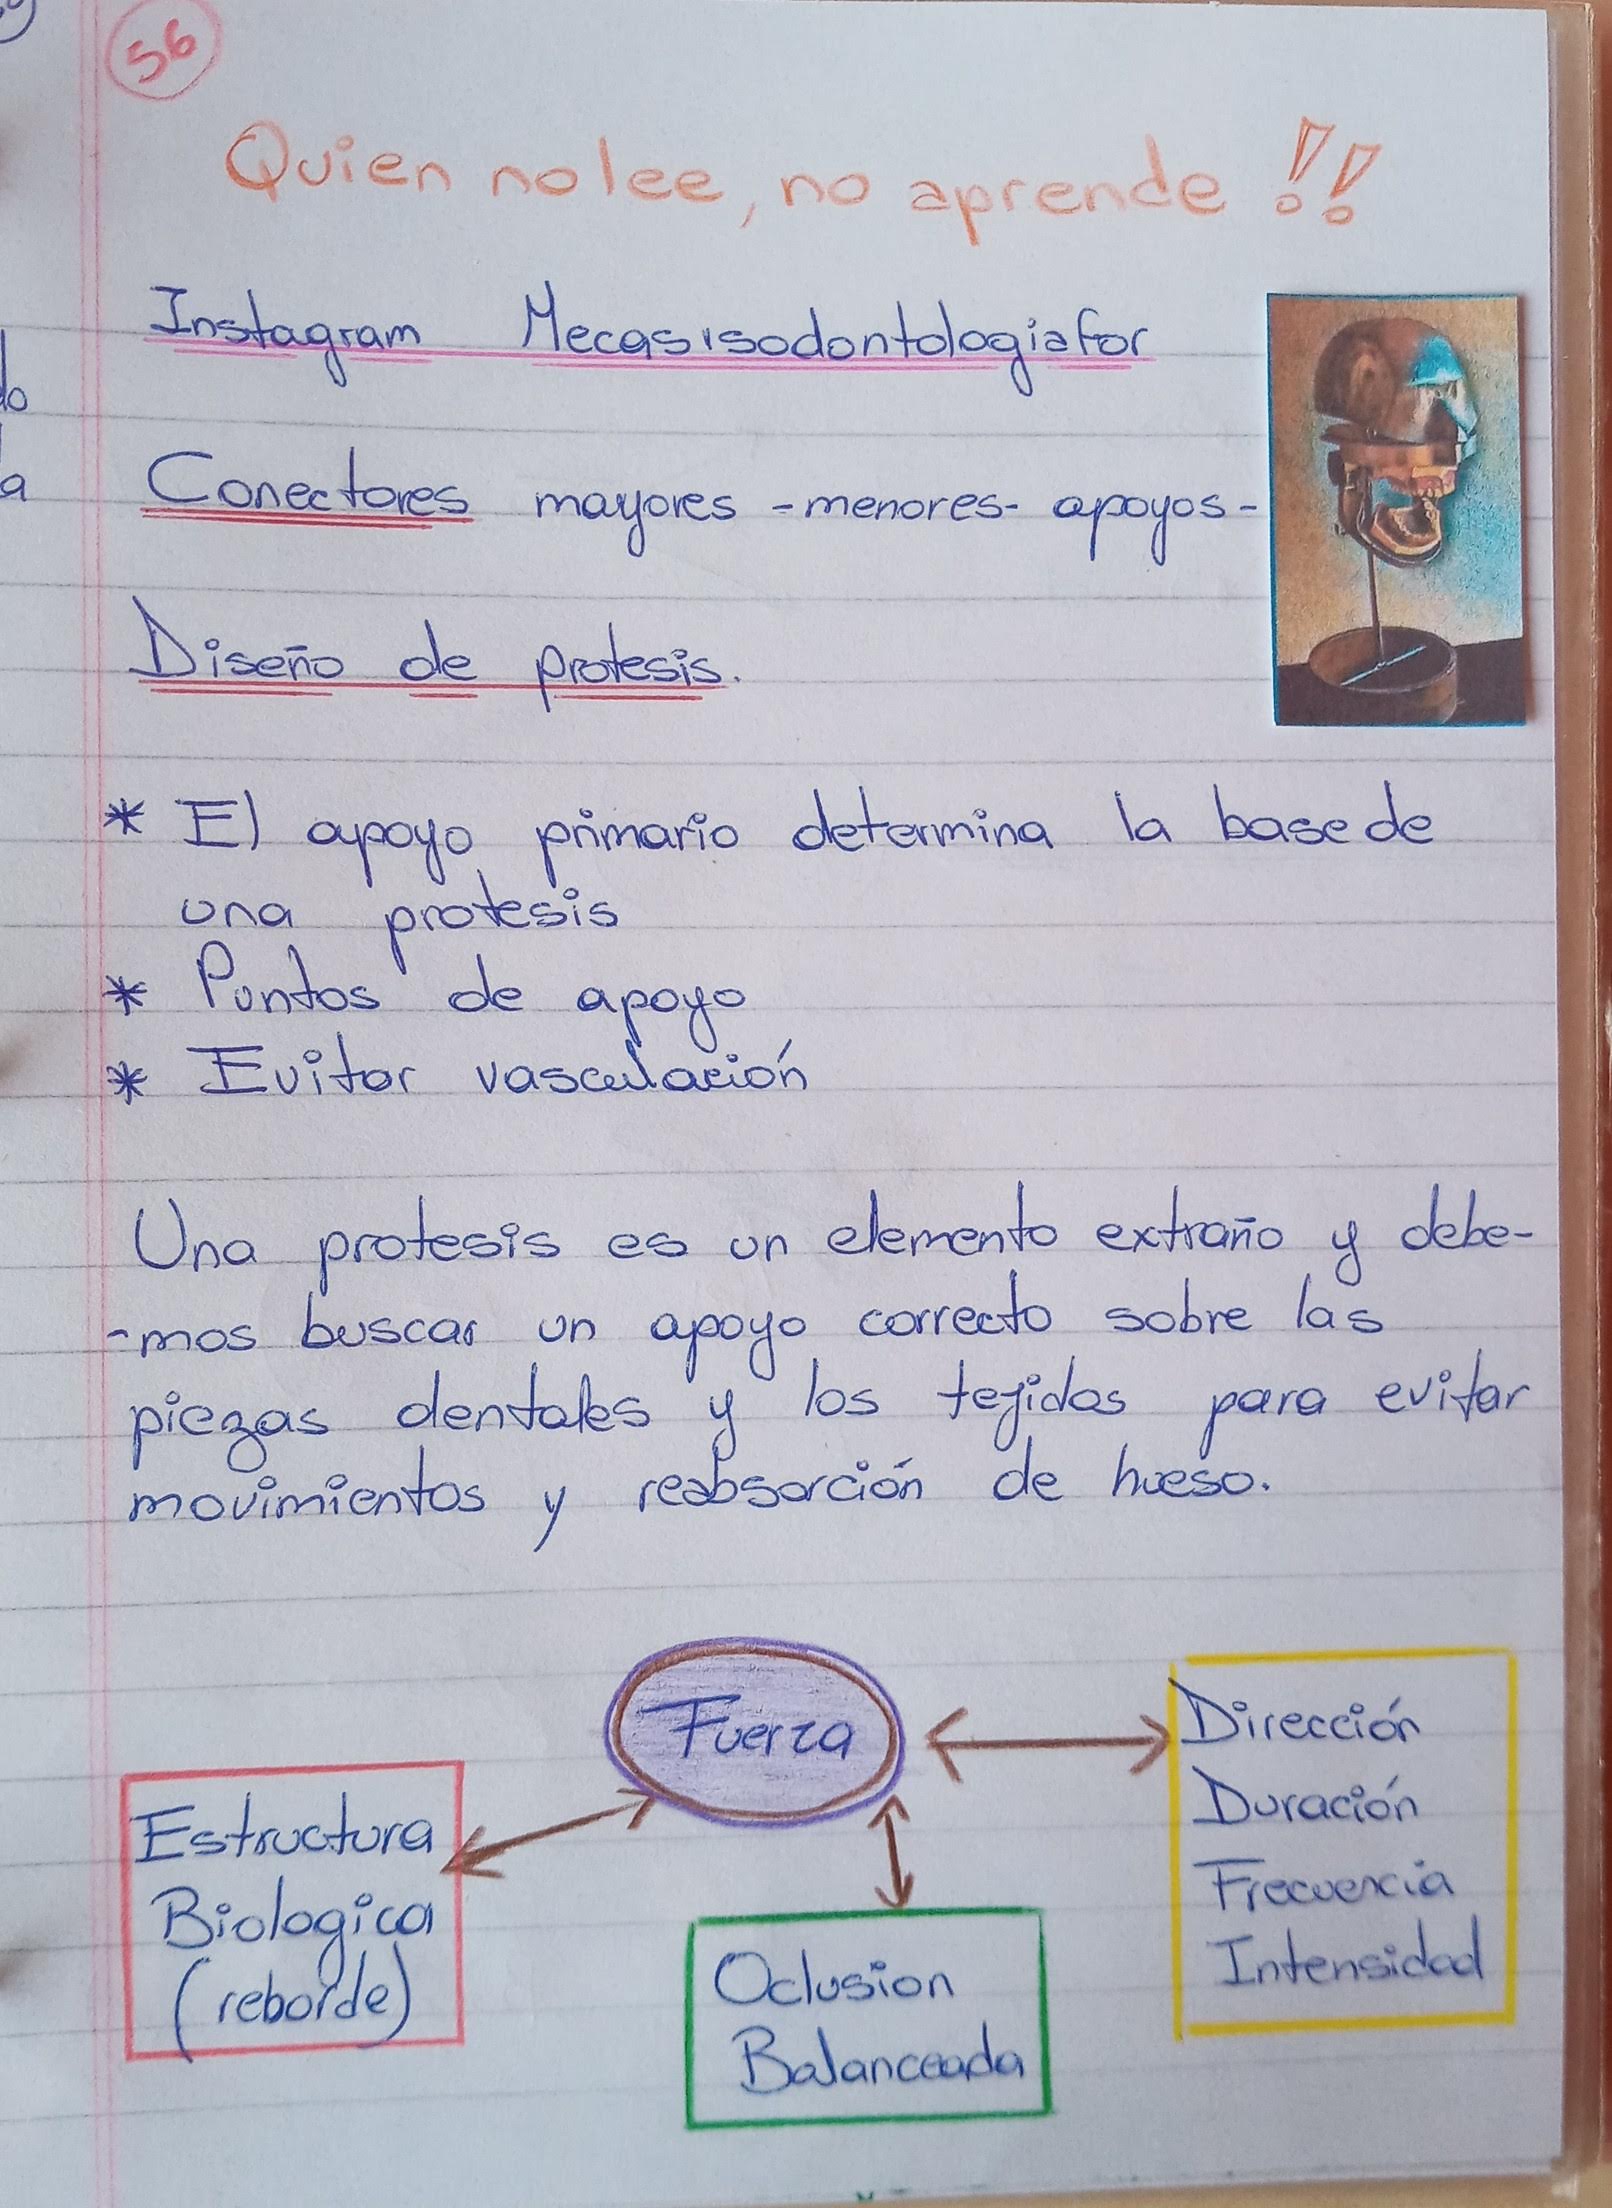 56
Quien no lee, no aprende !!
Instagram Mecasisodontologiafor
Conectores mayores - menores - apoyos -
Diseño de protesis.
* El apoyo primario determina la base de
una protesis
* Puntos de apoyo
* Evitar vasculación
Una protesis es un elemento extraño y debe-
-mos buscar un apoyo correcto sobre las
piezas dentales y los tejidos para evitar
movimientos y reabsorción de hueso.
Fuerza
Dirección
Duración
Frecuencia
Intensidad
Estructura
Biologica
(reborde)
Oclusion
Balanceada
do
a